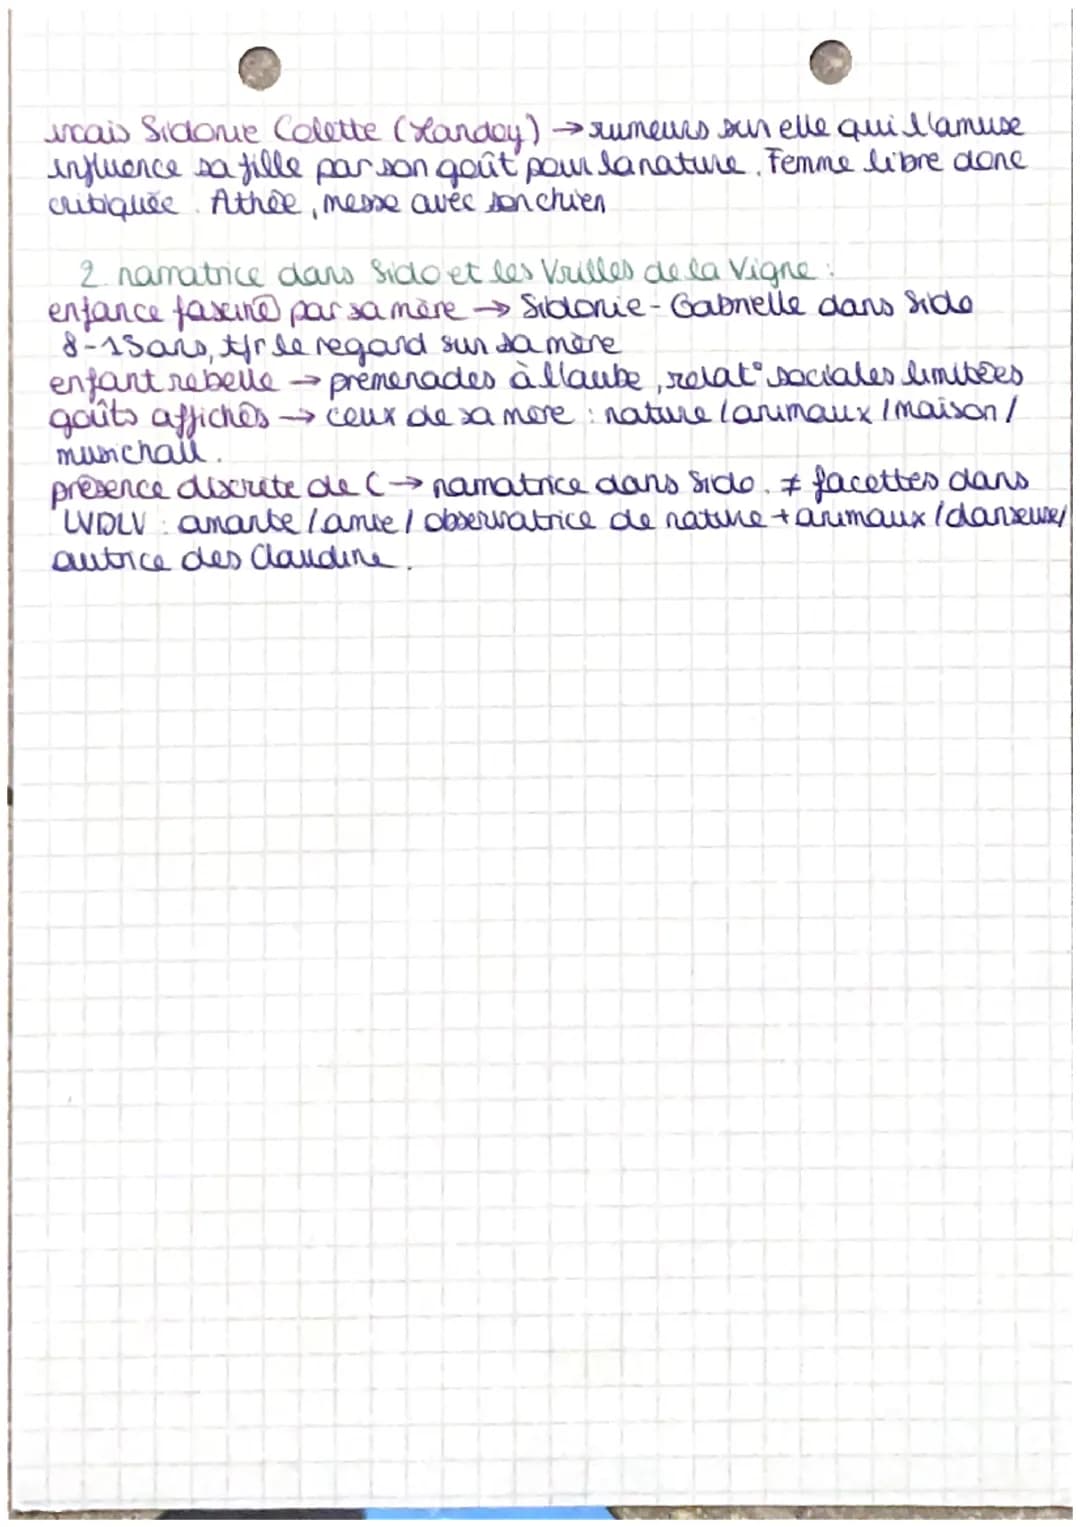 vraie Sidonie Colette (Landoy) → rumeurs sur elle qui l'amuse
influence sa fille par son goût pour la nature. Femme libre donc
critiquée. Athée, messe avec son chien
2. narratrice dans Sido et les Vrilles de la Vigne :
enfance fasciné par sa mère → Sidonie-Gabrielle dans Sido
8-15ans, tjr le regard sur sa mère
enfant rebelle → promenades à l'aube, relat° sociales limitées
goûts affichés → ceux de sa mère : nature / animaux / maison /
présence discrète de C → narratrice dans Sido. ≠ facettes dans
LVDLV : amante / amie / observatrice de nature + animaux / danseuse /
autrice des Claudine.